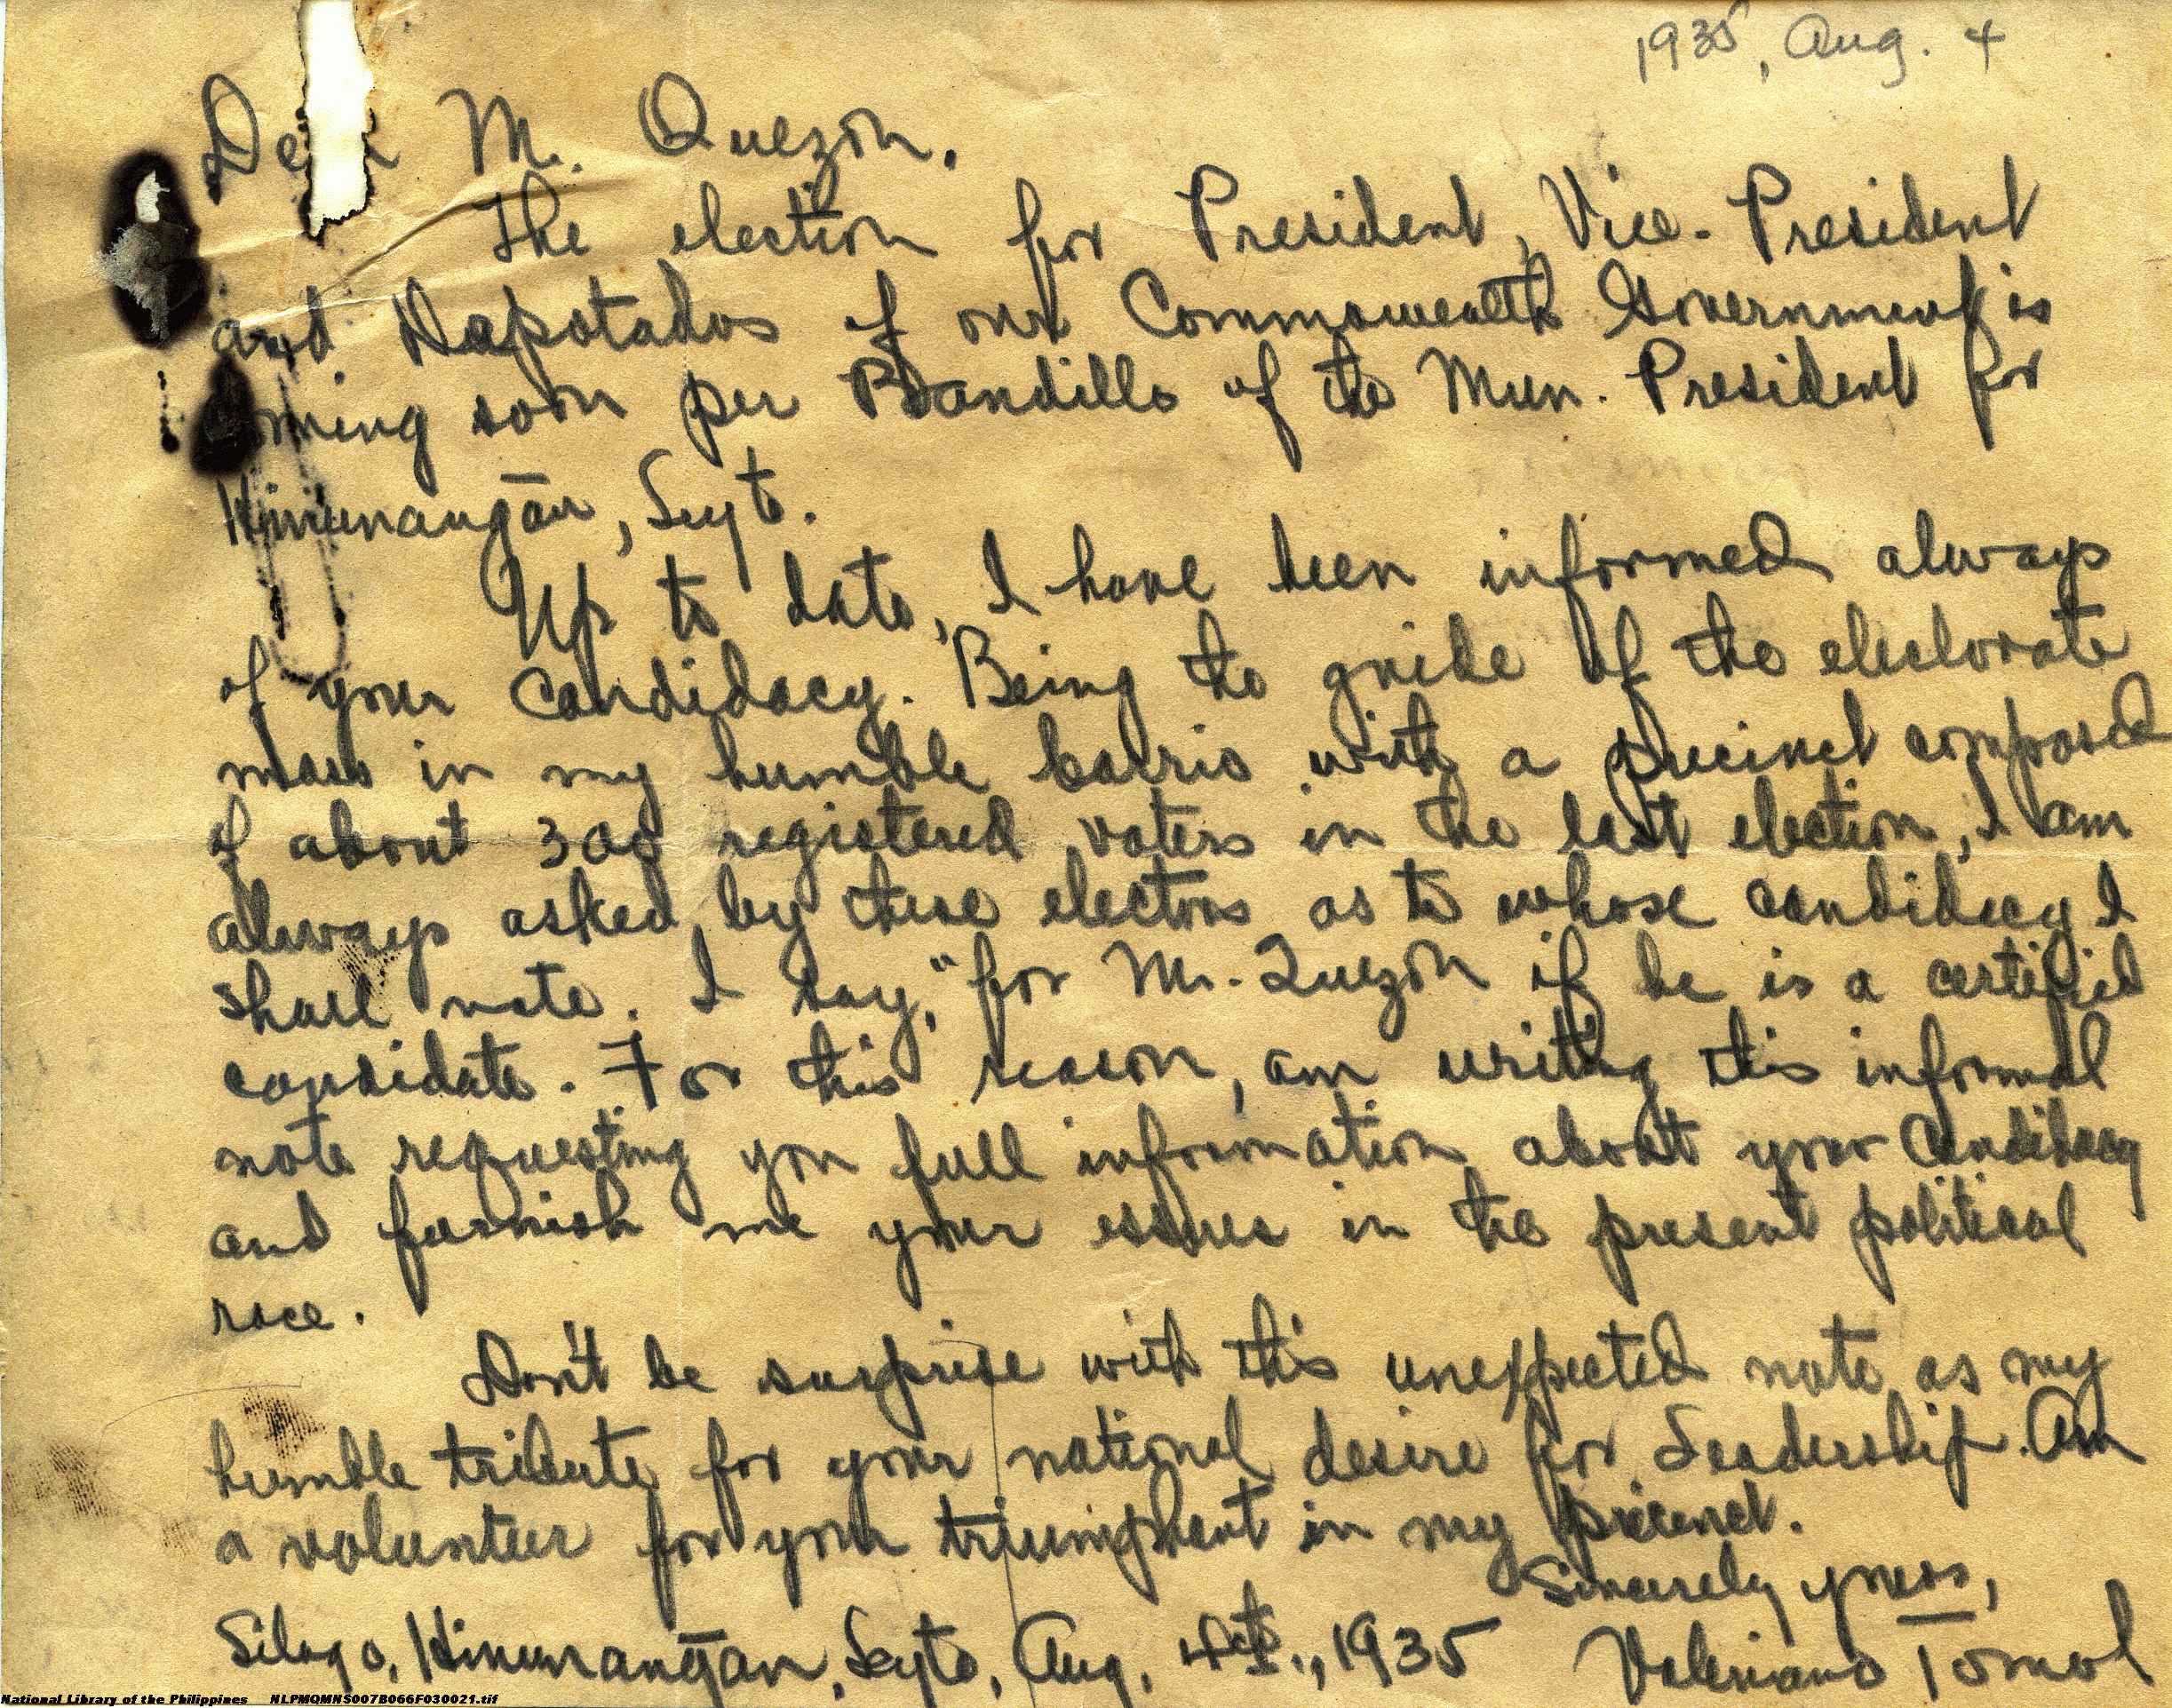 1935, Aug. 4
Dear M. Quezon.
The election for President, Vice-President
and Dapotados of our Commonwealth Government is
ming soon per Bandillo of the Mun. President for
Hinunangan, Leyte.
Up to date, I have been informed always
of your candidacy. Being the guide of the electorate
mass in my humble barrio with a precinct composed
of about 300 registered voters in the last election, I am
always asked by these electors as to whose candidacy I
shall vote. I say, "for Mr. Quezon if he is a certified
candidate. For this reason, am writing this informal
note requesting you full information about your Candidacy
and furnish me your essues in the present political
race.
Don't be surprise with this unexpected note as my
humble tribute for your national desire for Leadership. Am
a volunteer for your triumphant in my precinct.
Sincerely yours,
Silago, Hinunangan, Leyte, Aug. 4th., 1935 Valeriano Tomol
National Library of the Philippines NLPMQMNS007B066F030021.tif